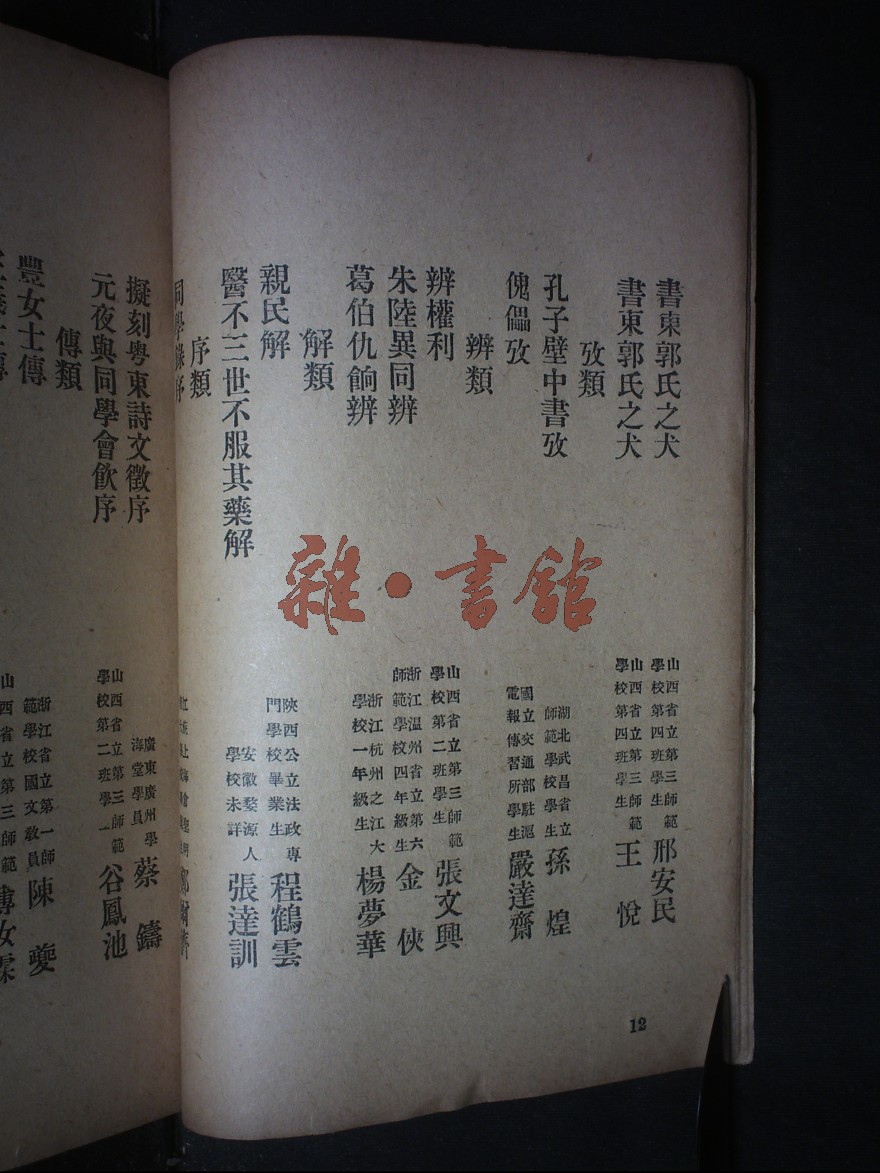 書東郭氏之犬 山西省立第三師範學校第四班學生 邢安民
書東郭氏之犬 山西省立第三師範學校第四班學生 王悅
攷類
孔子壁中書攷 湖北武昌省立師範學校學生 孫煌
傀儡攷 國立交通部駐滬電報傳習所學生 嚴達齋
辨類
辨權利 山西省立第三師範學校第二班學生 張文興
朱陸異同辨 浙江温州省立第六師範學校四年級生 金俠
葛伯仇餉辨 浙江杭州之江大學校一年級生 楊夢華
解類
親民解 陝西公立法政專門學校畢業生 程鶴雲
醫不三世不服其藥解 安徽婺源人學校未詳 張達訓
序類
同學錄序
擬刻粵東詩文徵序 廣東廣州學海堂學員 蔡鑄
元夜與同學會飲序 山西省立第三師範學校第二班學 谷鳳池
傳類
豐女士傳 浙江省立第一師範學校國文敎員 陳夔
傳 山西省立第三師範
雜・書館
12